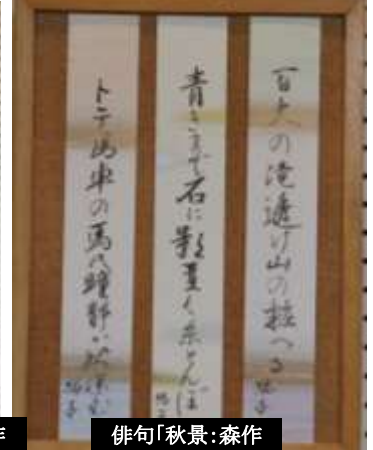 百丈の滝 山の粧へる
青きまで石に影置く糸とんぼ
トテ馬車の馬の瞳静か秋深む
作
俳句「秋景:森作